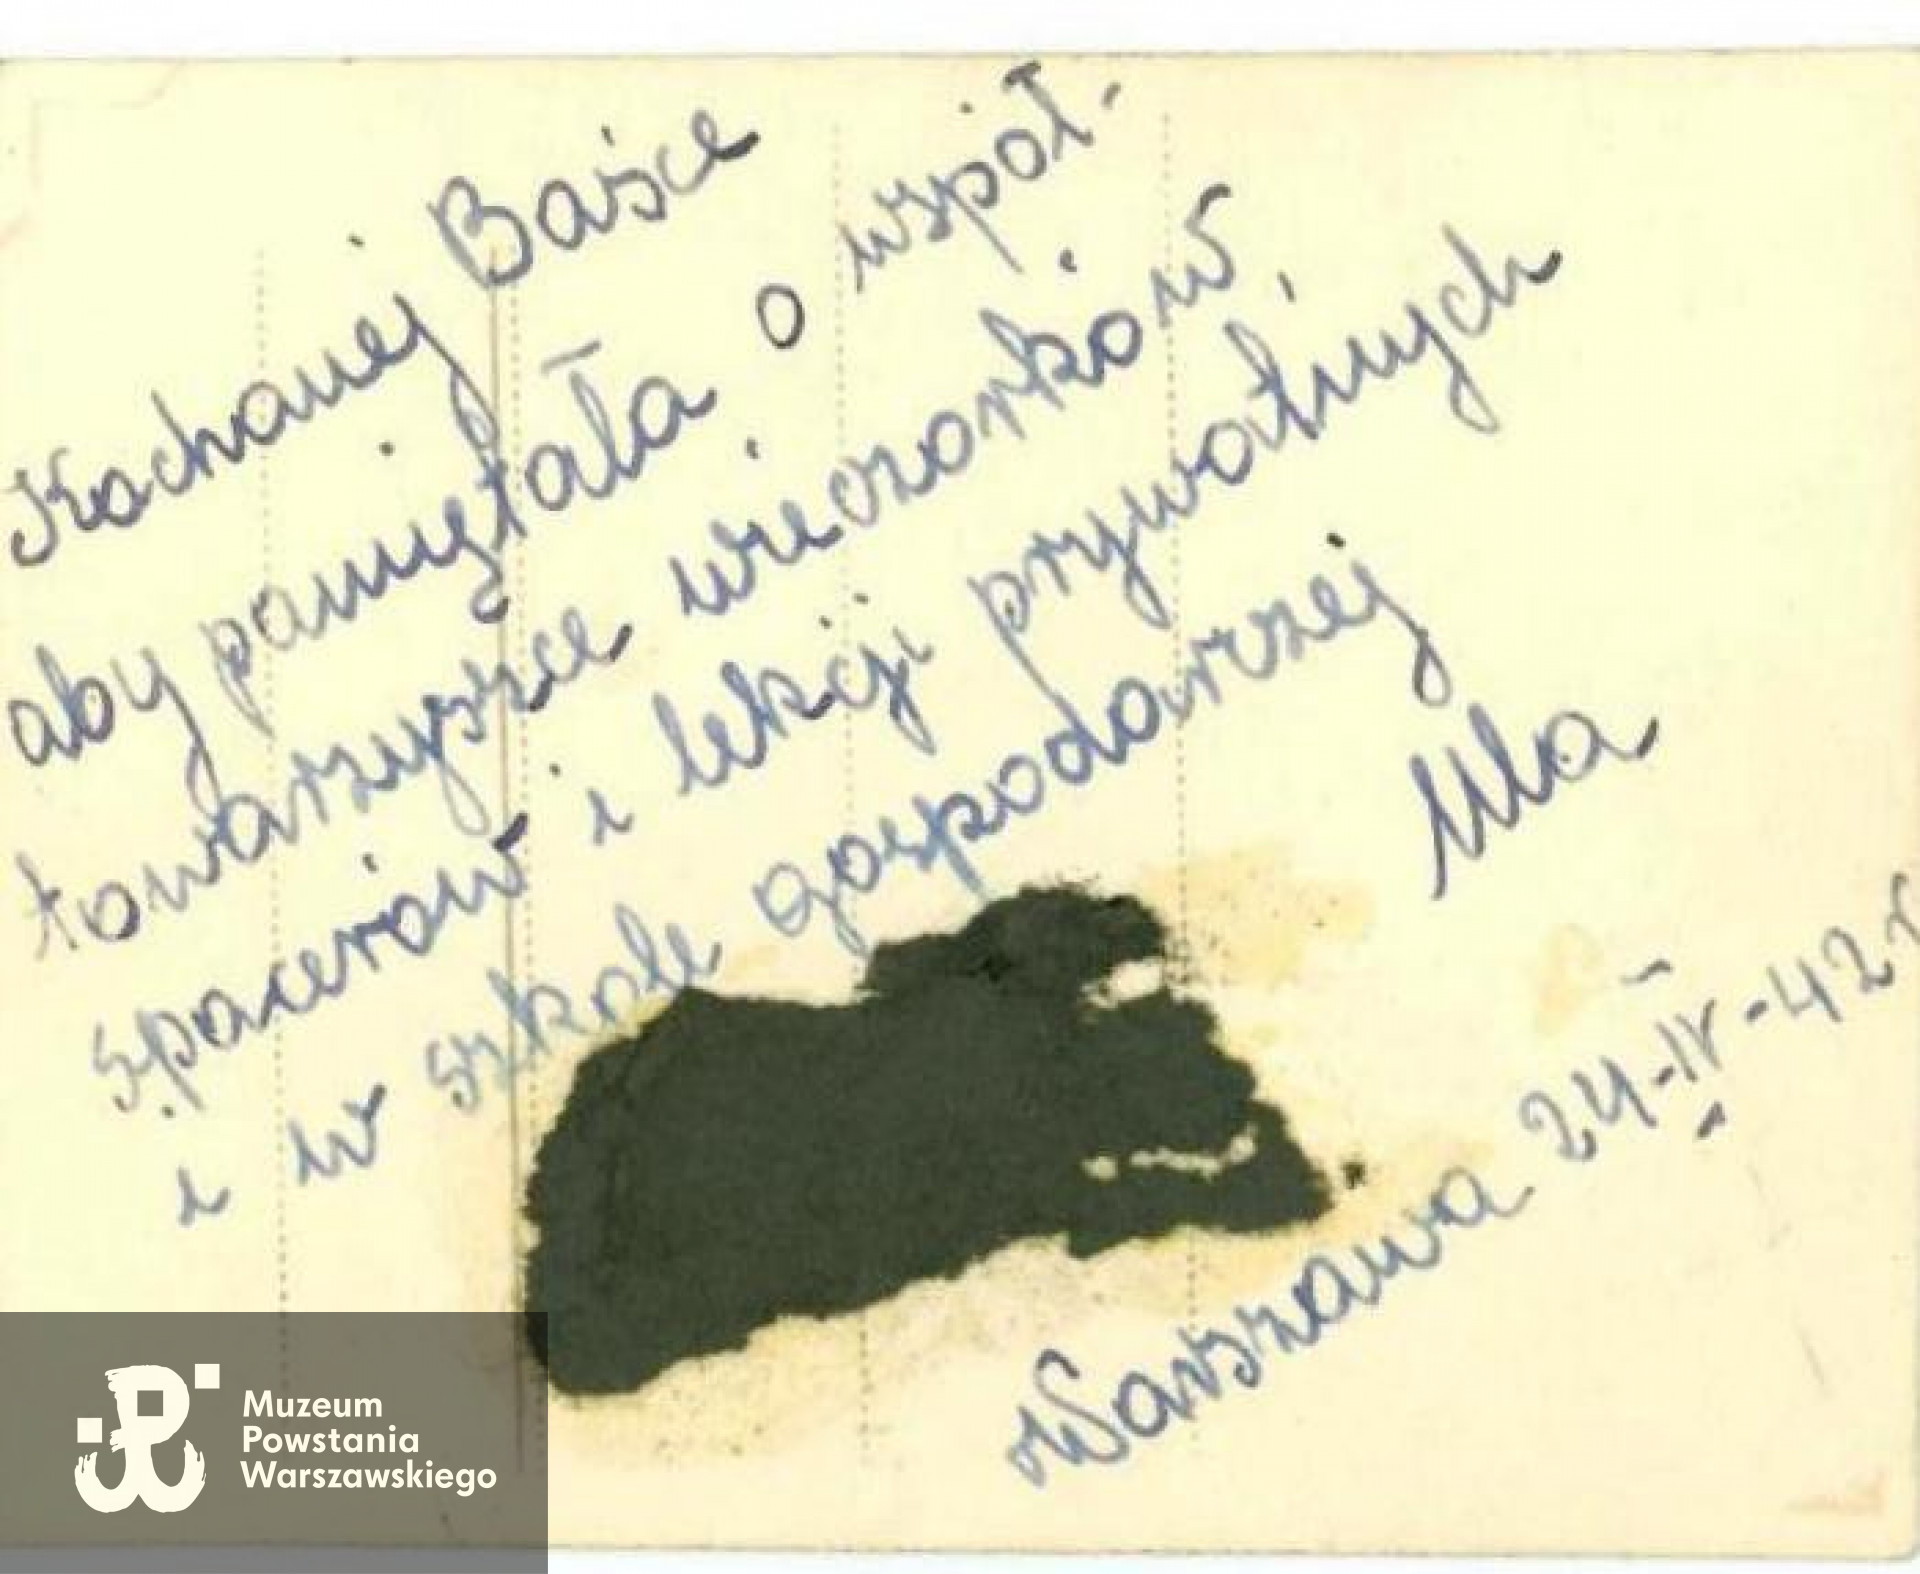 Kochanej Baśce
aby pamiętała o współ-
towarzyszce wieczorków,
spacerów i lekcji prywatnych
i w szkole gospodarzej
Ula
Warszawa 24-IV-42r
Muzeum
Powstania
Warszawskiego